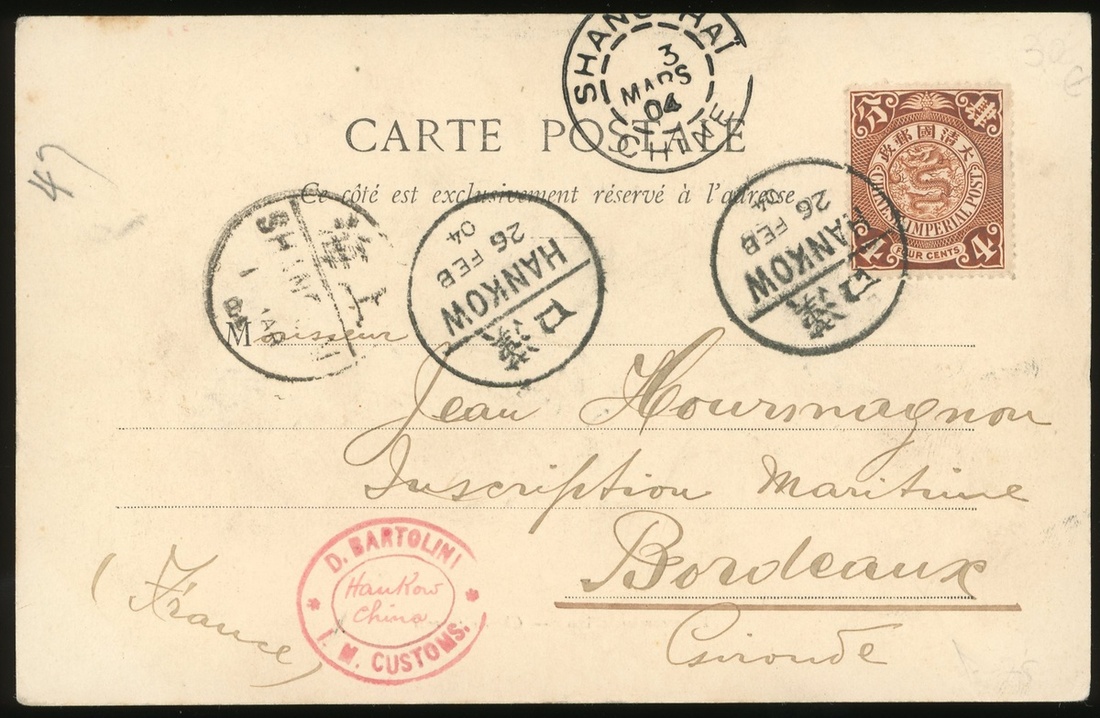 SHANG-HAÏ
3
MARS
04
CHINE
30
肆 分
大清國郵政
CHINESE IMPERIAL POST
4 4
FOUR CENTS
CARTE POSTALE
47
Ce côté est exclusivement réservé à l'adresse
上海
1 MAR
04
26 FEB
HANKOW
漢口
04
26 FEB
HANKOW
漢口
Monsieur
Jean Hourmagnou
Inscription Maritime
Bordeaux
Gironde
(France)
D. BARTOLINI
Hankow
China
* I. M. CUSTOMS. *